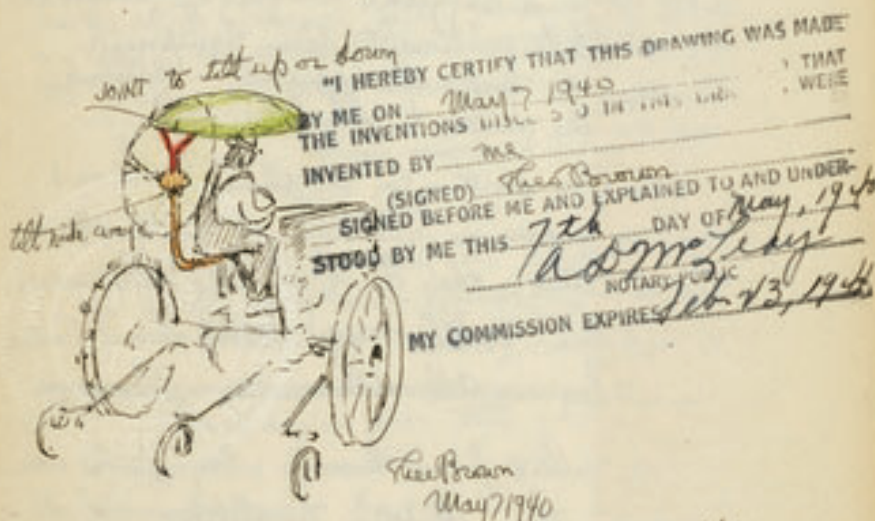 JOINT to tilt up or down
"I HEREBY CERTIFY THAT THIS DRAWING WAS MADE
BY ME ON May 7 1940 , THAT
THE INVENTIONS IN THIS , WERE
INVENTED BY me
(SIGNED) Theo Brown
SIGNED BEFORE ME AND EXPLAINED TO AND UNDER-
STOOD BY ME THIS 7th DAY OF May, 1940
NOTARY PUBLIC
MY COMMISSION EXPIRES Feb. 23, 194
tilt side ways
Theo Brown
May 7 1940